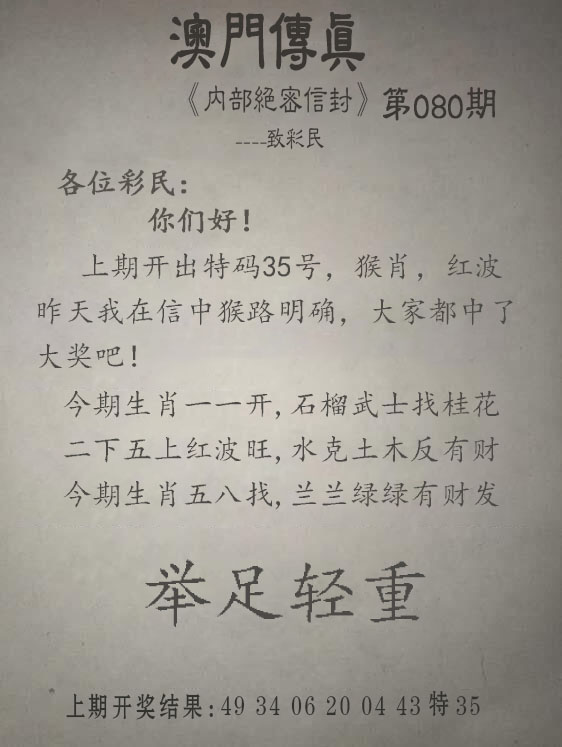 澳門傳眞
《内部絕密信封》第080期
----致彩民
各位彩民：
你们好！
上期开出特码35号，猴肖，红波
昨天我在信中猴路明确，大家都中了
大奖吧！
今期生肖一一开,石榴武士找桂花
二下五上红波旺,水克土木反有财
今期生肖五八找,兰兰绿绿有财发
举足轻重
上期开奖结果:49 34 06 20 04 43 特 35